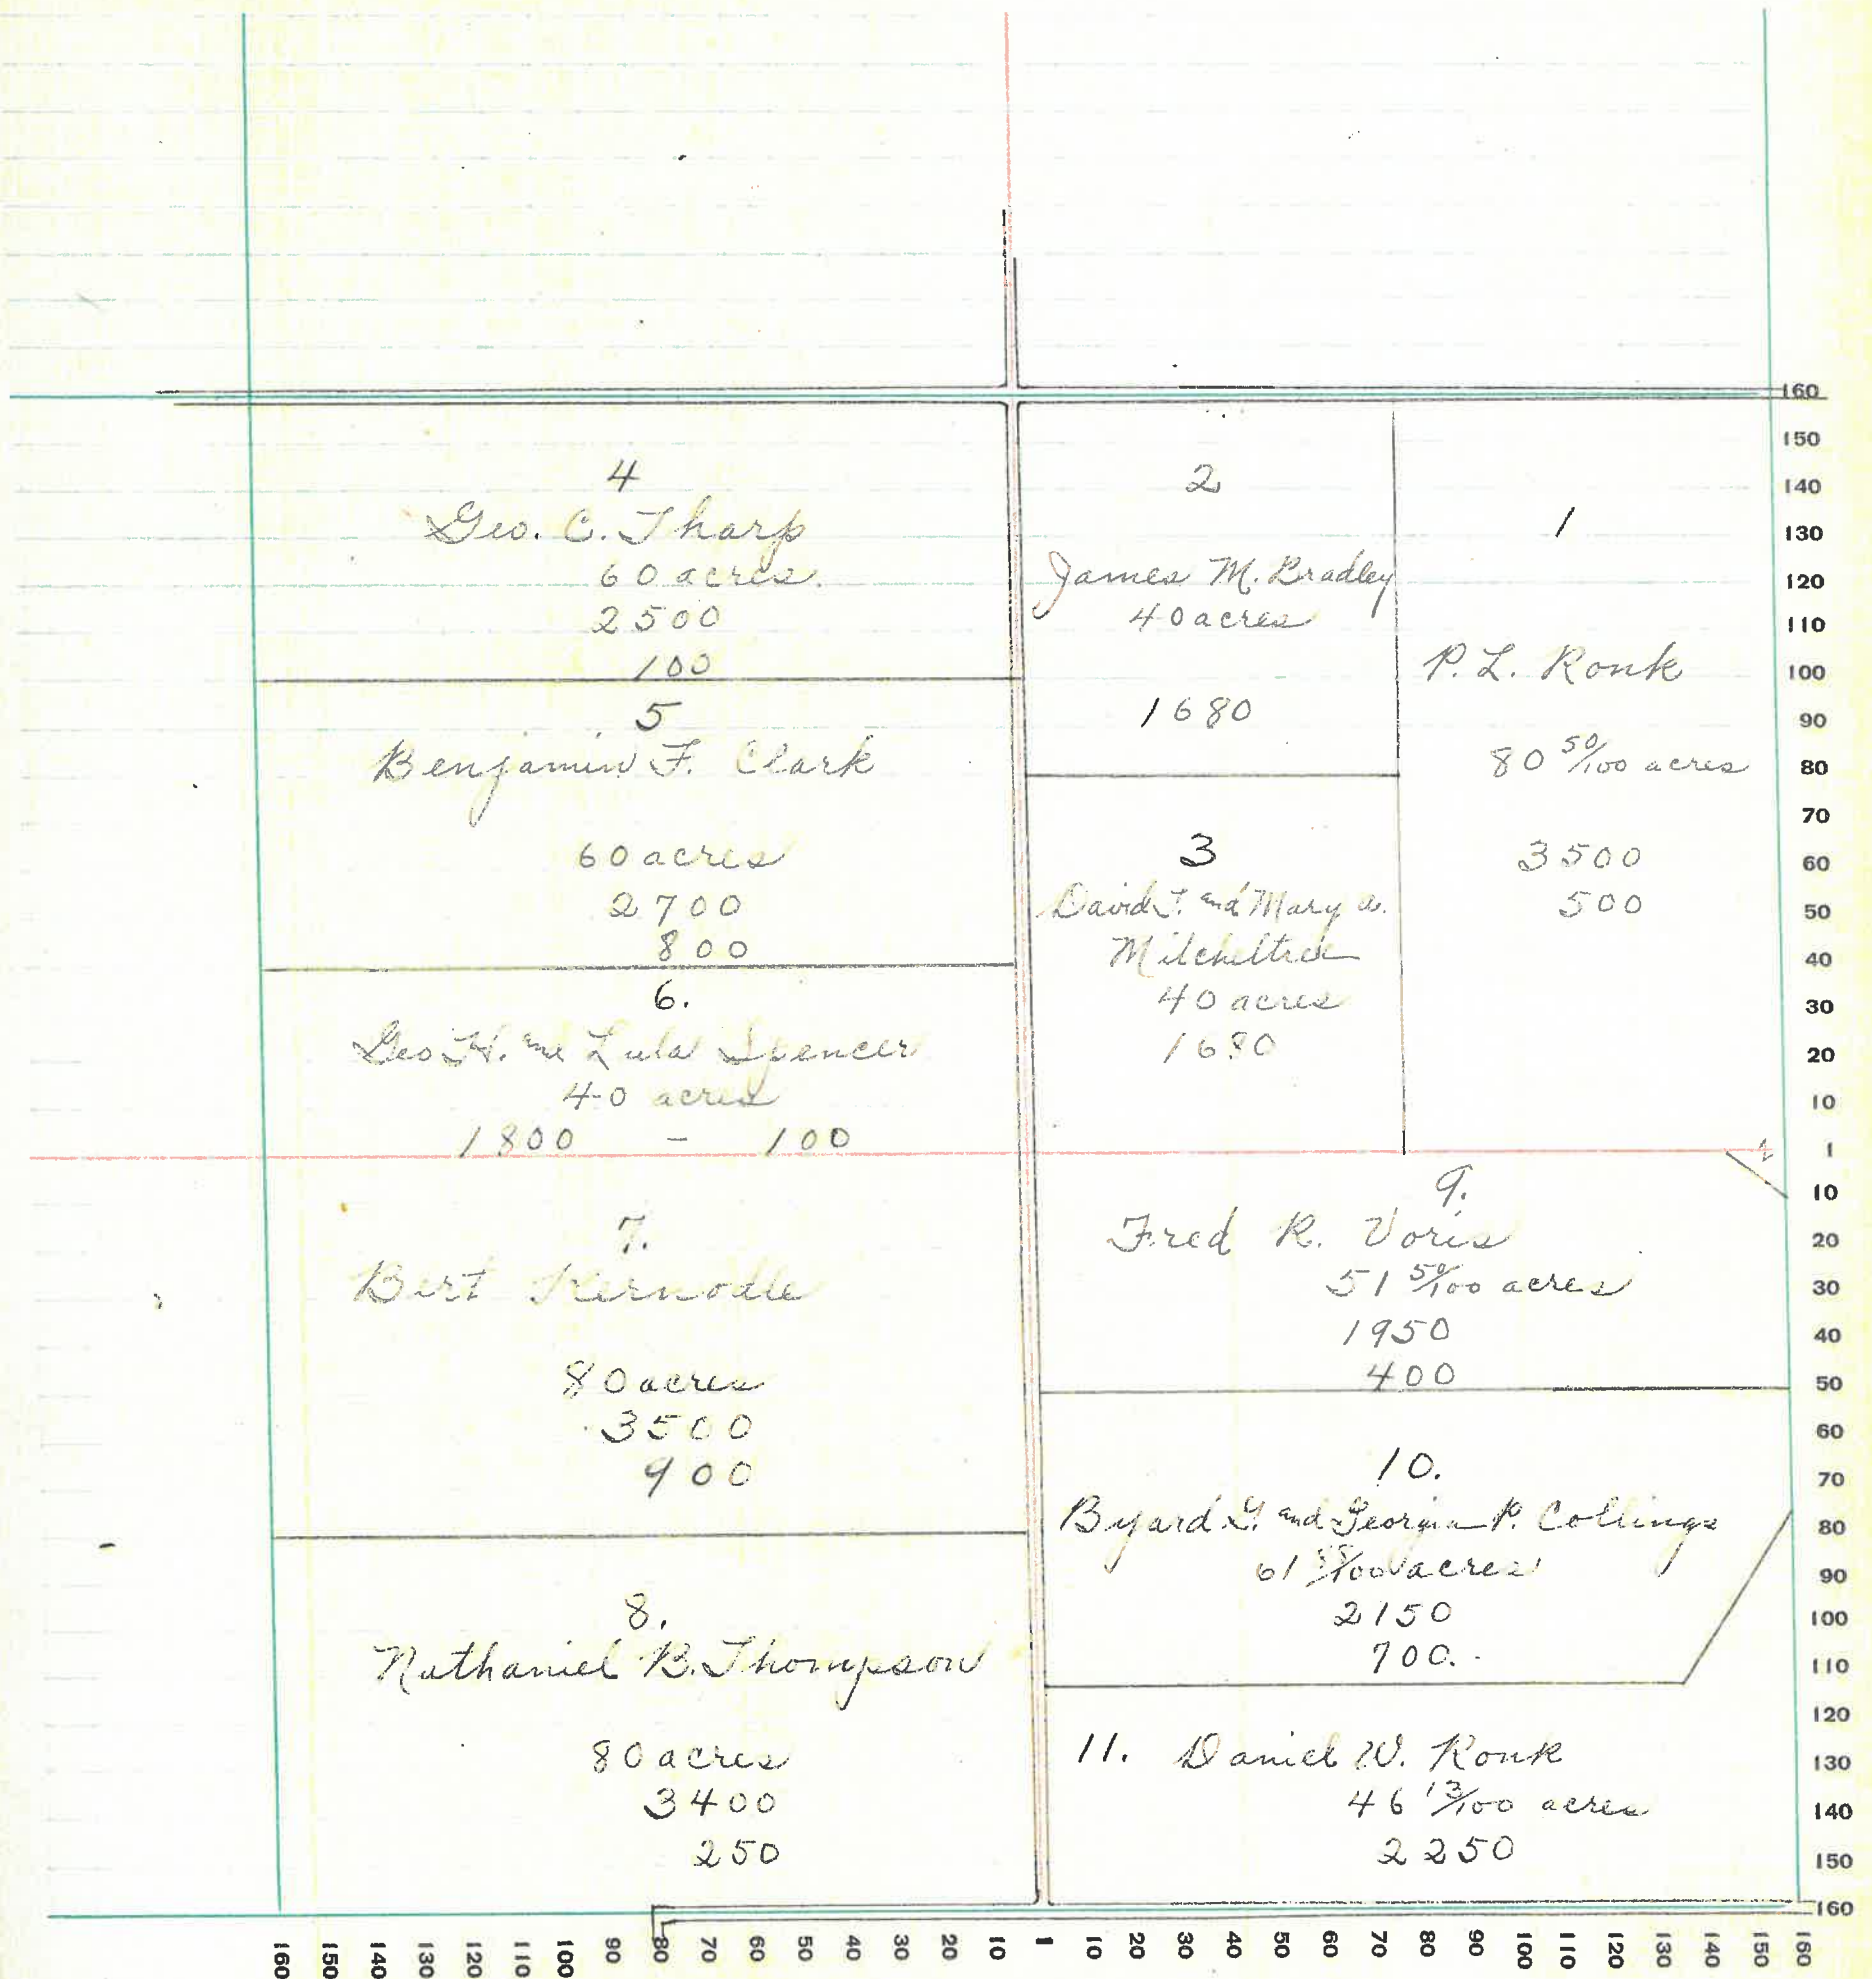 4
Geo. C. Tharp
60 acres.
2500
100
5
Benjamin F. Clark
60 acres
2700
800
6.
Geo H. and Lula Spencer
40 acres
1800 - 100
7.
Bert Kernodle
80 acres
3500
900
8.
Nathaniel B. Thompson
80 acres
3400
250
2
James M. Bradley
40 acres
1680
3
David T. and Mary A.
Mitcheltree
40 acres
1680
1
P. L. Ronk
80 50/100 acres
3500
500
9.
Fred R. Voris
51 50/100 acres
1950
400
10.
Byard G. and Georgia P. Collings
61 /100 acres
2150
700.
11. Daniel W. Ronk
46 13/100 acres
2250
160
150
140
130
120
110
100
90
80
70
60
50
40
30
20
10
1
10
20
30
40
50
60
70
80
90
100
110
120
130
140
150
160
160 150 140 130 120 110 100 90 80 70 60 50 40 30 20 10 1 10 20 30 40 50 60 70 80 90 100 110 120 130 140 150 160